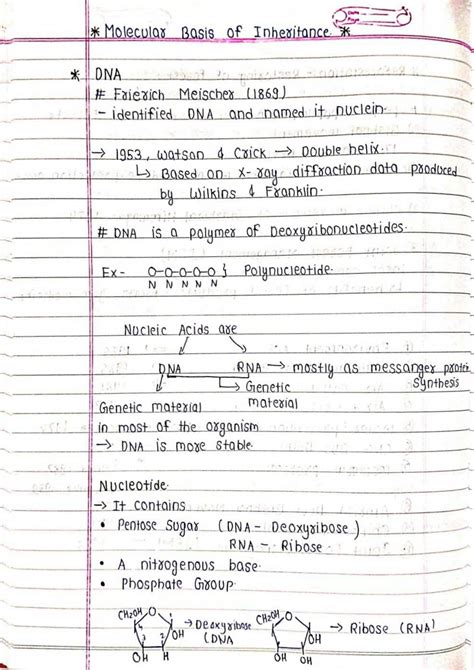 * Molecular Basis of Inheritance *
* DNA
# Frierich Meischer (1869)
- identified DNA and named it nuclein.
→ 1953, Watson & Crick → Double helix.
↳ Based on X-ray diffraction data produced
by Wilkins & Franklin.
# DNA is a polymer of Deoxyribonucleotides.
Ex- O-O-O-O-O } Polynucleotide.
N N N N N
Nucleic Acids are
DNA RNA → mostly as messanger protei
Synthesis
↳ Genetic
material
Genetic material
in most of the organism
→ DNA is more stable.
Nucleotide.
→ It contains
• Pentose Sugar (DNA - Deoxyribose)
RNA - Ribose.
• A nitrogenous base.
• Phosphate Group.
CH2OH O OH → Deoxyribose
(DNA
OH H
CH2OH O OH → Ribose (RNA)
OH OH